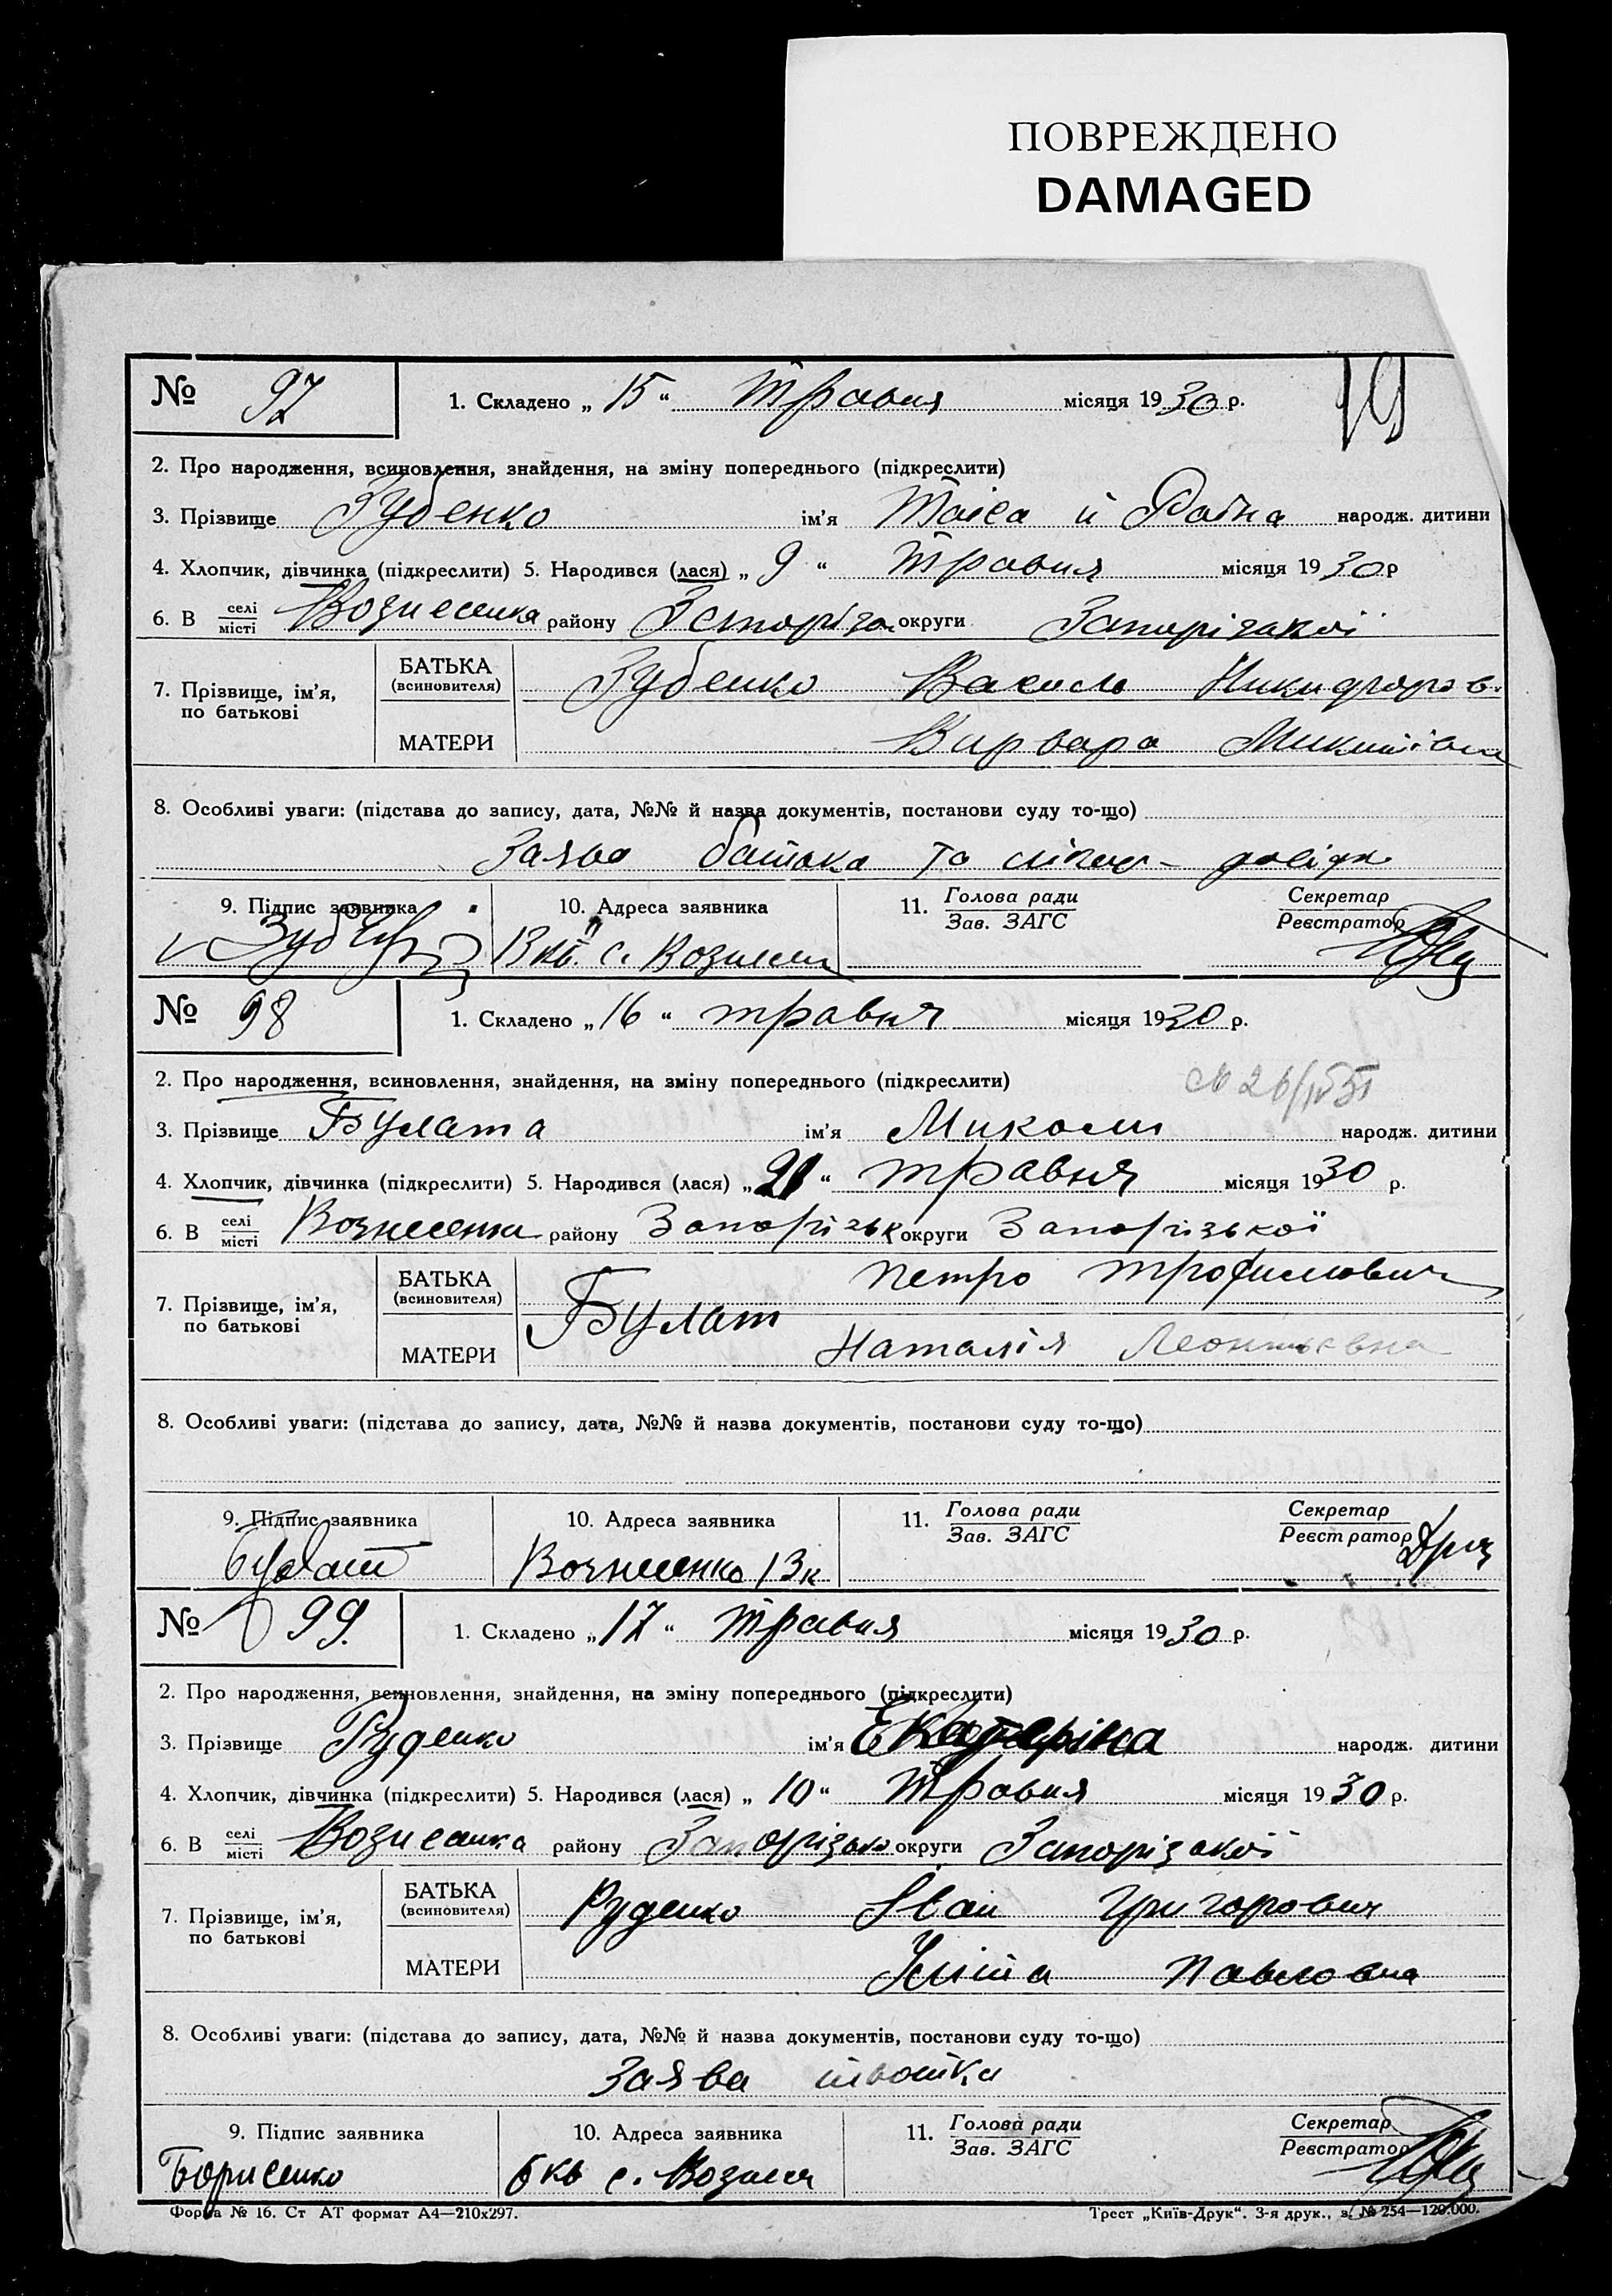 ПОВРЕЖДЕНО
DAMAGED
№ 97 1. Складено „15“ Травня місяця 1930 р.
2. Про народження, всиновлення, знайдення, на зміну попереднього (підкреслити)
3. Прізвище Зубенко ім'я Таіса й народж. дитини
4. Хлопчик, дівчинка (підкреслити) 5. Народився (лася) „9“ Травня місяця 1930 р
6. В селі місті Вознесенка району округи Запорізакої
7. Прізвище, ім'я, по батькові БАТЬКА (всиновителя) Зубенко Василь Никифоров.
МАТЕРИ Варвара
8. Особливі уваги: (підстава до запису, дата, №№ й назва документів, постанови суду то-що)
Заява батька та
9. Підпис заявника 10. Адреса заявника 11. Голова ради Зав. ЗАГС Секретар Реєстратор
13 кв. с. Вознесен
№ 98 1. Складено „16“ травня місяця 1930 р.
2. Про народження, всиновлення, знайдення, на зміну попереднього (підкреслити)
3. Прізвище Булата ім'я Миколи народж. дитини
4. Хлопчик, дівчинка (підкреслити) 5. Народився (лася) „ “ травня місяця 1930 р.
6. В селі місті Вознесенка району Запорізьк округи Запорізької
7. Прізвище, ім'я, по батькові БАТЬКА (всиновителя) Булат Петро Трофимович
МАТЕРИ Наталія Леонтьевна
8. Особливі уваги: (підстава до запису, дата, №№ й назва документів, постанови суду то-що)
9. Підпис заявника 10. Адреса заявника 11. Голова ради Зав. ЗАГС Секретар Реєстратор
Булат Вознесенка 13к
№ 99. 1. Складено „17“ Травня місяця 1930 р.
2. Про народження, всиновлення, знайдення, на зміну попереднього (підкреслити)
3. Прізвище Руденко ім'я Екатеріна народж. дитини
4. Хлопчик, дівчинка (підкреслити) 5. Народився (лася) „10“ Травня місяця 1930 р.
6. В селі місті Вознесенка району Запорізько округи Запорізакої
7. Прізвище, ім'я, по батькові БАТЬКА (всиновителя) Руденко Іван Григорович
МАТЕРИ Павловна
8. Особливі уваги: (підстава до запису, дата, №№ й назва документів, постанови суду то-що)
Заява
9. Підпис заявника 10. Адреса заявника 11. Голова ради Зав. ЗАГС Секретар Реєстратор
Борисенко 6 кв с. Вознесен
Форма № 16. Ст АТ формат А4—210х297. Трест „Київ-Друк“. 3-я друк., з. № 254—120.000.